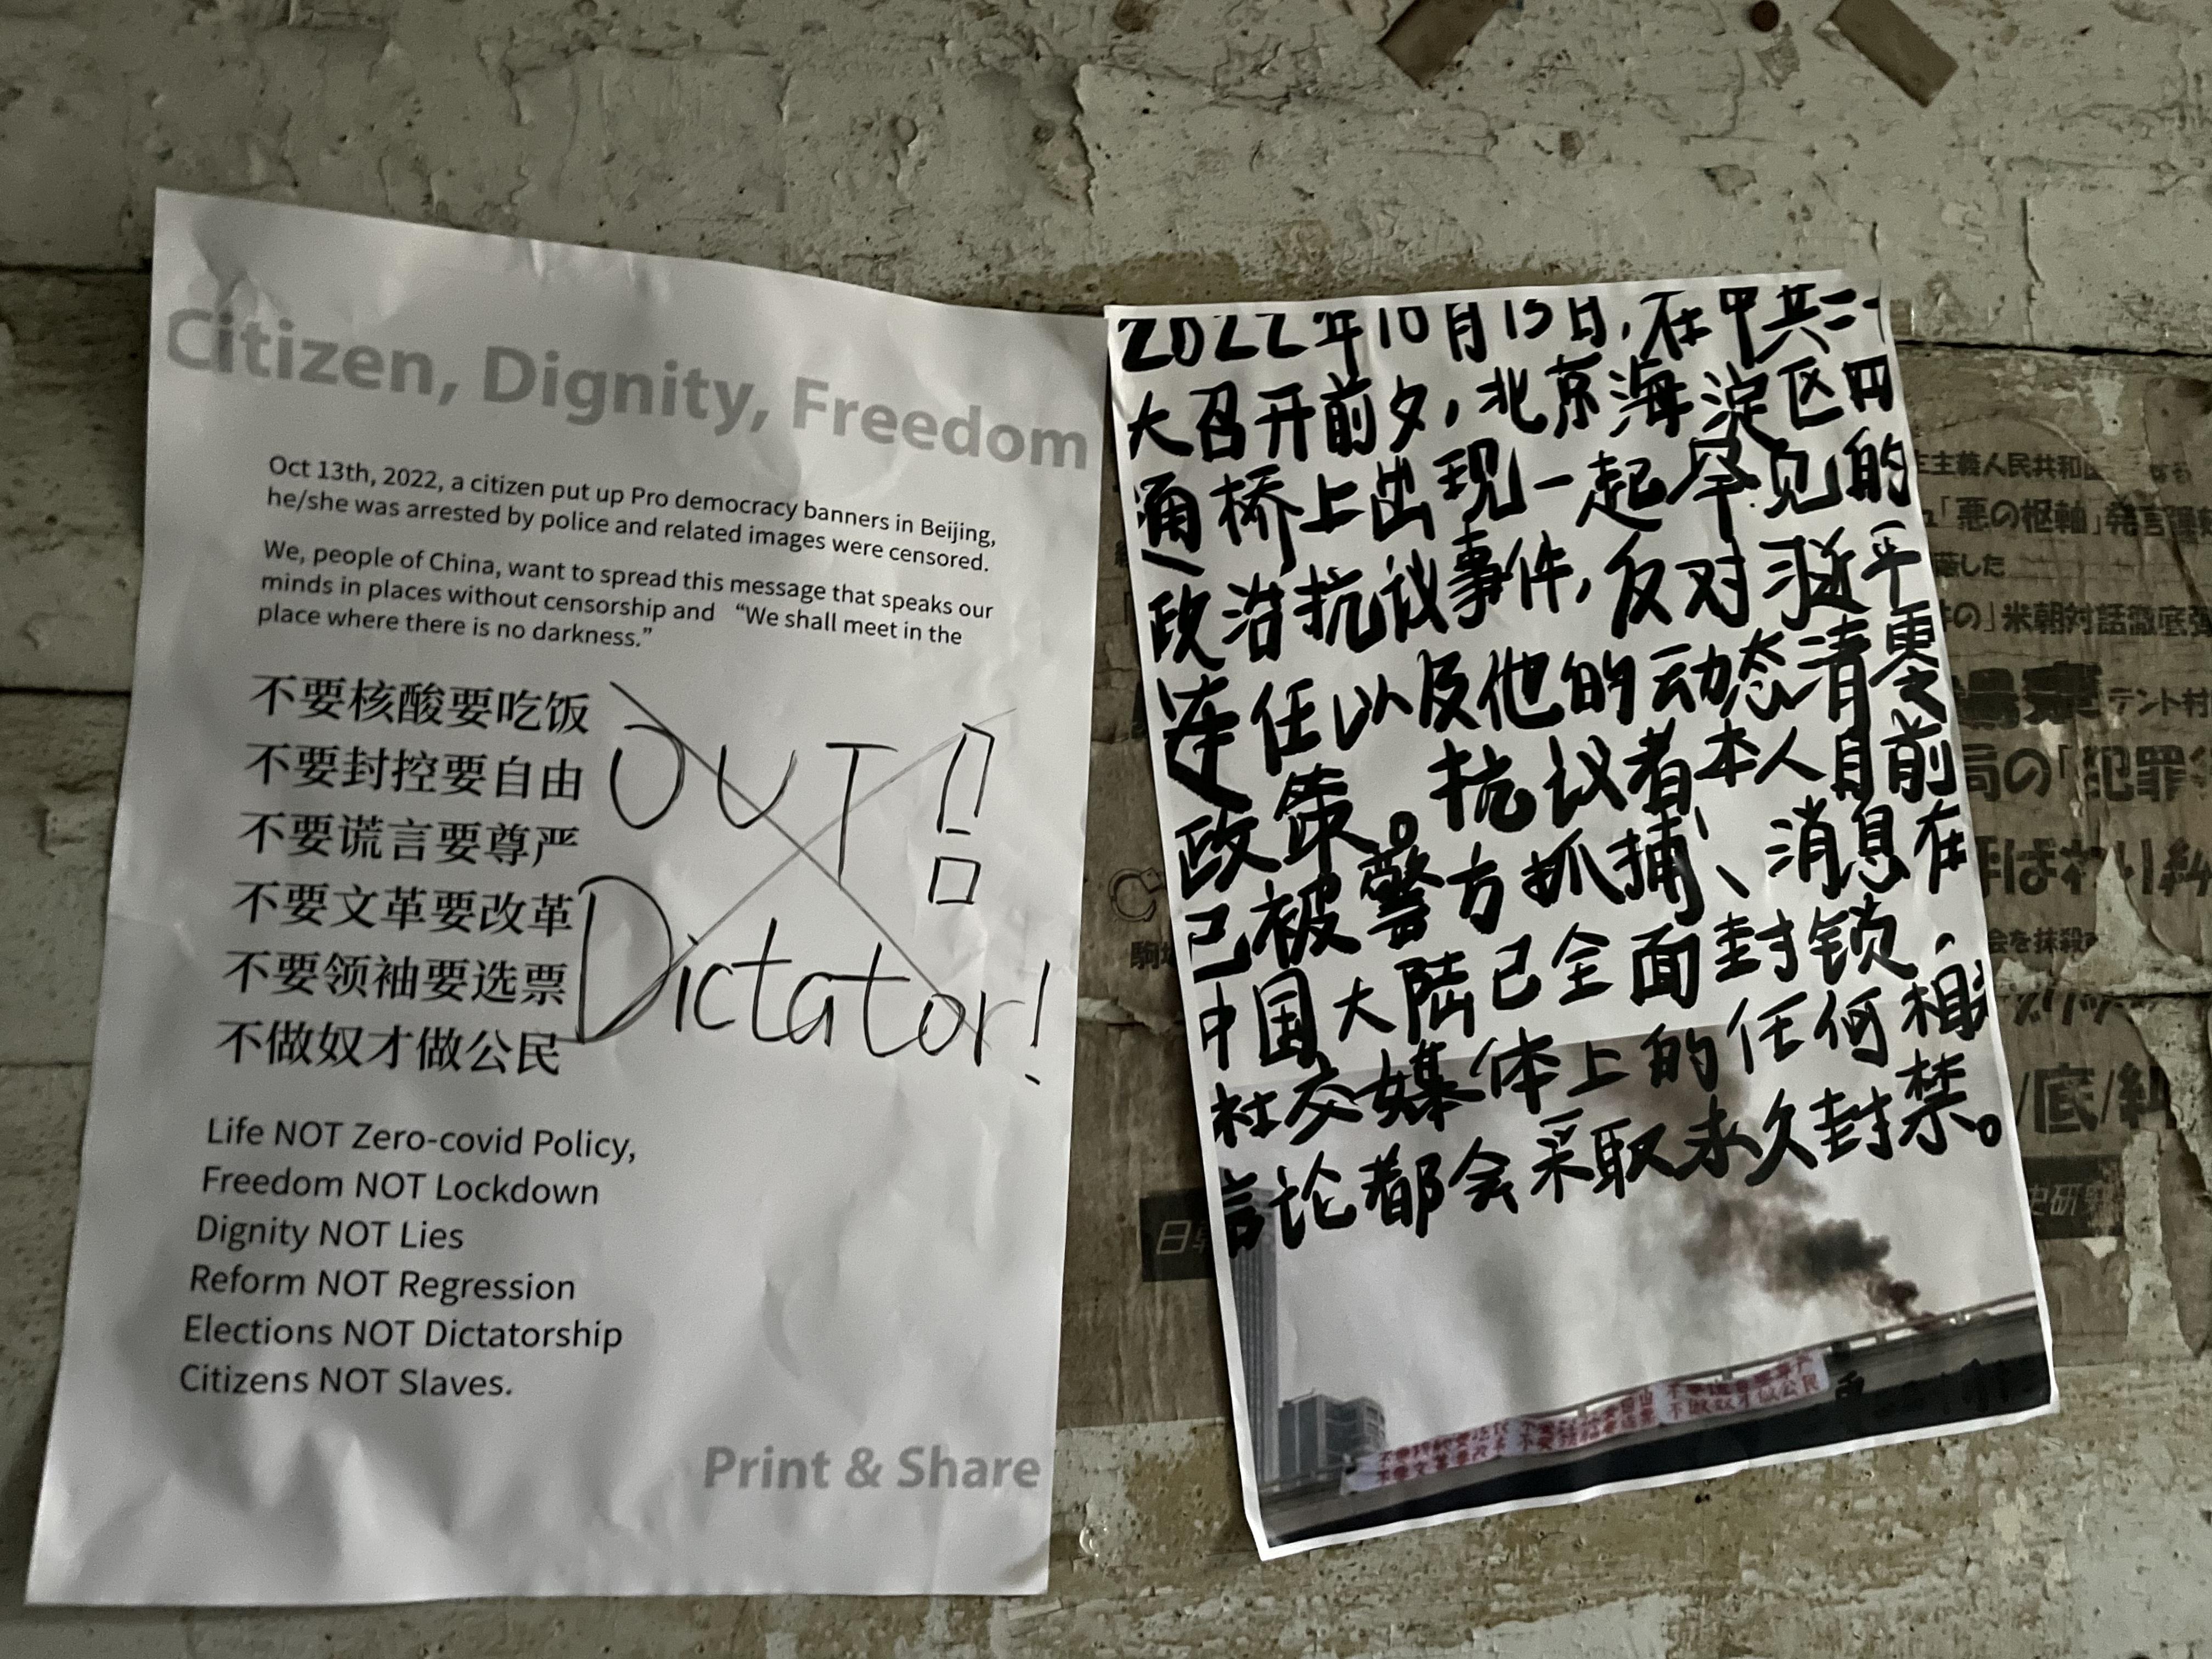 Citizen, Dignity, Freedom
Oct 13th, 2022, a citizen put up Pro democracy banners in Beijing,
he/she was arrested by police and related images were censored.
We, people of China, want to spread this message that speaks our
minds in places without censorship and “We shall meet in the
place where there is no darkness.”
不要核酸要吃饭
不要封控要自由
不要谎言要尊严
不要文革要改革
不要领袖要选票
不做奴才做公民
OUT!
Dictator!
Life NOT Zero-covid Policy,
Freedom NOT Lockdown
Dignity NOT Lies
Reform NOT Regression
Elections NOT Dictatorship
Citizens NOT Slaves.
Print & Share
2022年10月13日,在中共二十
大召开前夕,北京海淀区四
通桥上出现一起罕见的
政治抗议事件,反对习近平
连任以及他的动态清零
政策。抗议者本人目前
已被警方抓捕、消息在
中国大陆已全面封锁,
社交媒体上的任何相关
言论都会采取永久封禁。
不做奴才做公民
主主義人民共和
「悪の枢軸」発言
した
の」米朝対話徹底
テント村
の「犯罪
を抹殺
/底/糾
史研